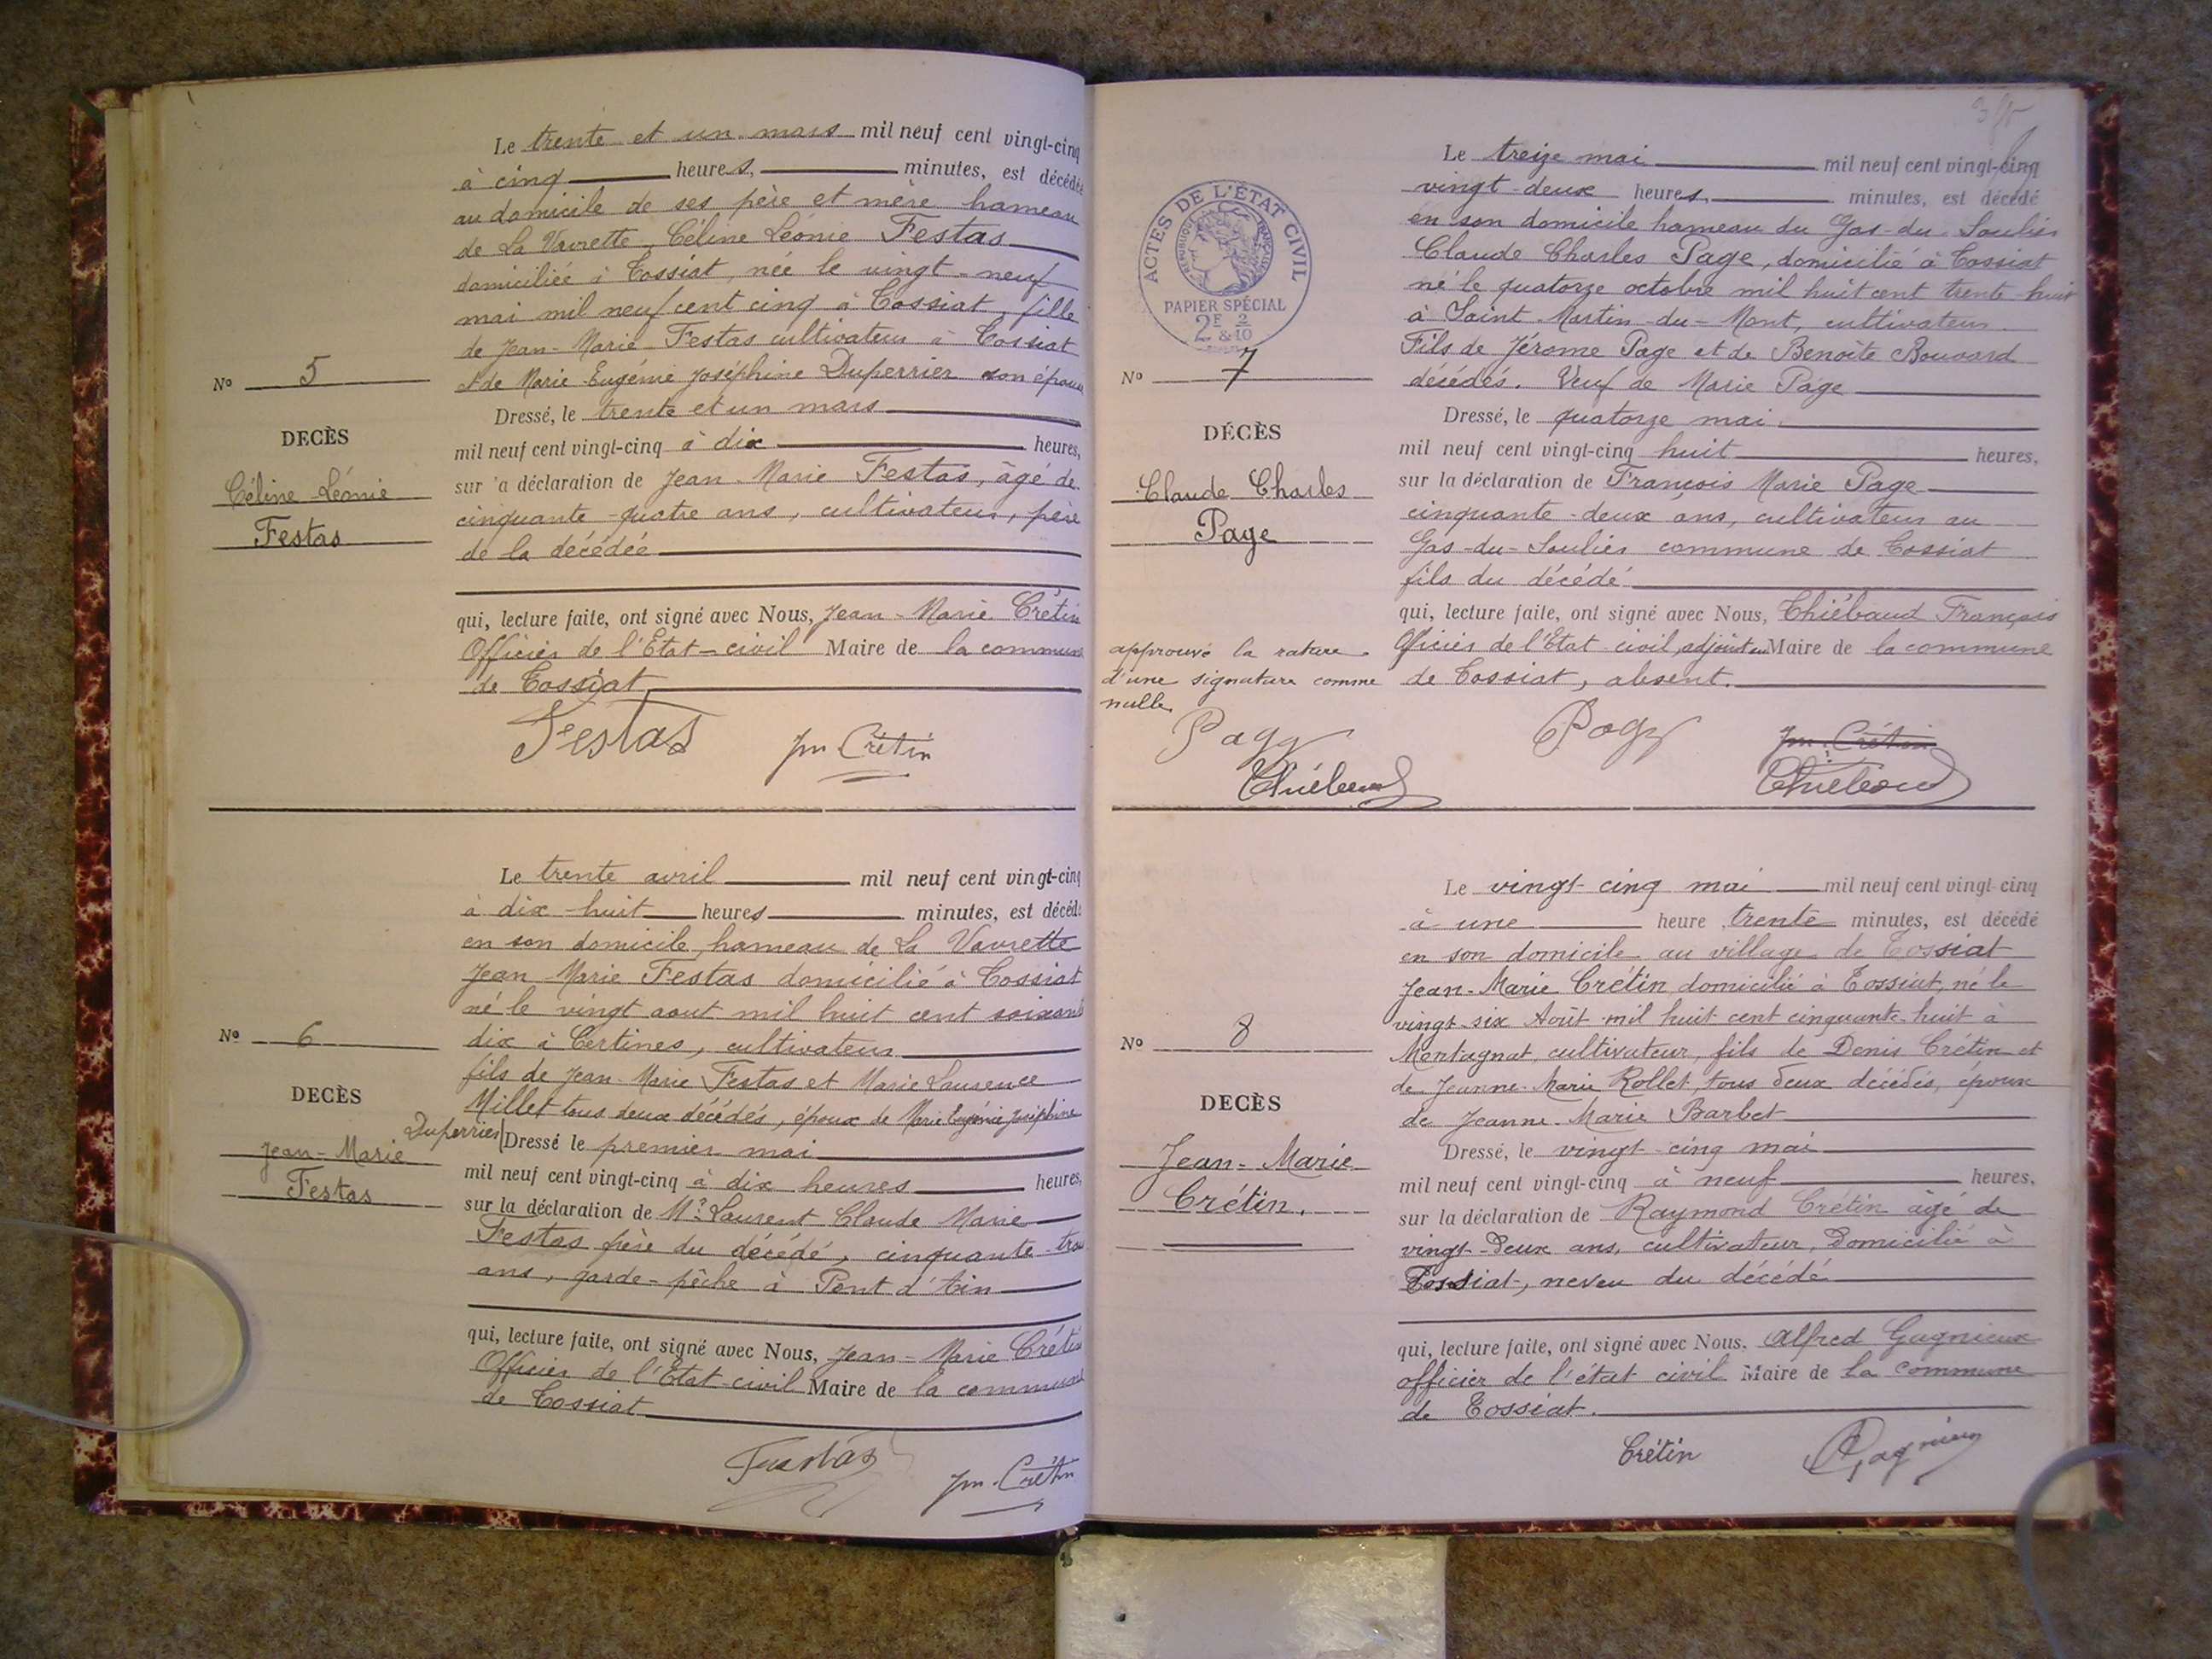 Le trente et un mars mil neuf cent vingt-cinq
à cinq heures, minutes, est décédée
au domicile de ses père et mère hameau
de La Vavrette, Céline Léonie Festas
domiciliée à Tossiat, née le vingt-neuf
mai mil neuf cent cinq à Tossiat, fille
de Jean-Marie Festas cultivateur à Tossiat
et de Marie Eugénie Joséphine Duperrier son épouse
No 5
DECÈS
Céline Léonie
Festas
Dressé, le trente et un mars
mil neuf cent vingt-cinq à dix heures,
sur la déclaration de Jean-Marie Festas, âgé de
cinquante-quatre ans, cultivateur, père
de la décédée
qui, lecture faite, ont signé avec Nous, Jean-Marie Crétin
Officier de l'Etat-civil Maire de la commune
de Tossiat
Festas Jm Crétin
Le trente avril mil neuf cent vingt-cinq
à dix-huit heures minutes, est décédé
en son domicile, hameau de La Vavrette
Jean Marie Festas domicilié à Tossiat
né le vingt aout mil huit cent soixante
dix à Certines, cultivateur
fils de Jean-Marie Festas et Marie Laurence
Millet tous deux décédés, époux de Marie Eugénie Joséphine
Duperrier
No 6
DECÈS
Jean-Marie
Festas
Dressé le premier mai
mil neuf cent vingt-cinq à dix heures heures,
sur la déclaration de Mr Laurent Claude Marie
Festas frère du décédé, cinquante-trois
ans, garde-pêche à Pont d'Ain
qui, lecture faite, ont signé avec Nous, Jean-Marie Crétin
Officier de l'Etat-civil Maire de la commune
de Tossiat
Festas Jm. Crétin
ACTES DE L'ÉTAT CIVIL
RÉPUBLIQUE FRANÇAISE
PAPIER SPÉCIAL
2F & 2/10
Le treize mai mil neuf cent vingt-cinq
vingt-deux heures, minutes, est décédé
en son domicile hameau du Gas-du-Soulier
Claude Charles Page, domicilié à Tossiat
né le quatorze octobre mil huit cent trente-huit
à Saint-Martin-du-Mont, cultivateur
Fils de Jérome Page et de Benoîte Bouvard
décédés. Veuf de Marie Page
No 7
DÉCÈS
Claude Charles
Page
Dressé, le quatorze mai
mil neuf cent vingt-cinq huit heures,
sur la déclaration de François Marie Page
cinquante-deux ans, cultivateur au
Gas-du-Soulier commune de Tossiat
fils du décédé
qui, lecture faite, ont signé avec Nous, Thiébaud François
Officier de l'Etat civil, adjoint au Maire de la commune
de Tossiat, absent.
approuvé la rature
d'une signature comme
nulle
Page Page Jm. Crétin
Thiébaud Thiébaud
Le vingt-cinq mai mil neuf cent vingt-cinq
à une heure trente minutes, est décédé
en son domicile au village de Tossiat
Jean-Marie Crétin domicilié à Tossiat, né le
vingt-six Août mil huit cent cinquante-huit à
Montagnat, cultivateur, fils de Denis Crétin et
de Jeanne-Marie Rollet tous deux décédés, époux
de Jeanne-Marie Barbet
No 8
DECÈS
Jean-Marie
Crétin.
Dressé, le vingt-cinq mai
mil neuf cent vingt-cinq à neuf heures,
sur la déclaration de Raymond Crétin âgé de
vingt-deux ans, cultivateur, Domicilié à
Tossiat, neveu du décédé
qui, lecture faite, ont signé avec Nous, Alfred Gagnieux
officier de l'état civil Maire de la commune
de Tossiat.
Crétin AGagnieux